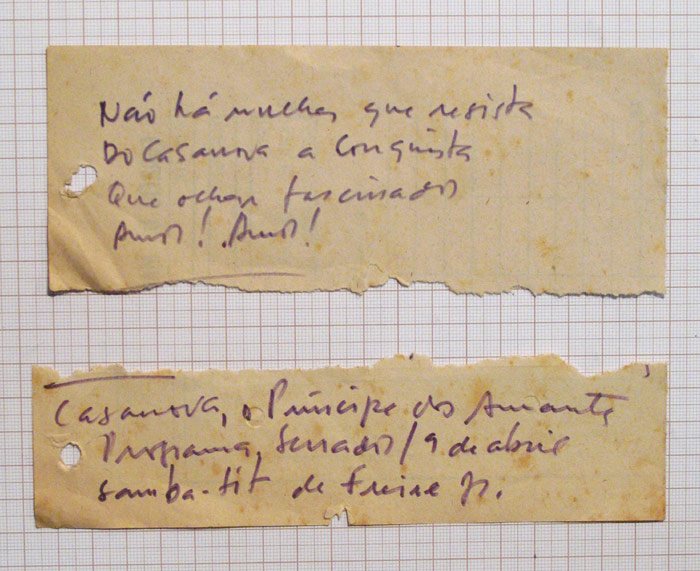 Não há mulher que resista
Do Casanova a Conquista
Que olhar fascinador
Amor! Amor!
Casanova, o Príncipe dos Amantes
Programa, Serrador/9 de abril
samba-fit de Freire Jr.